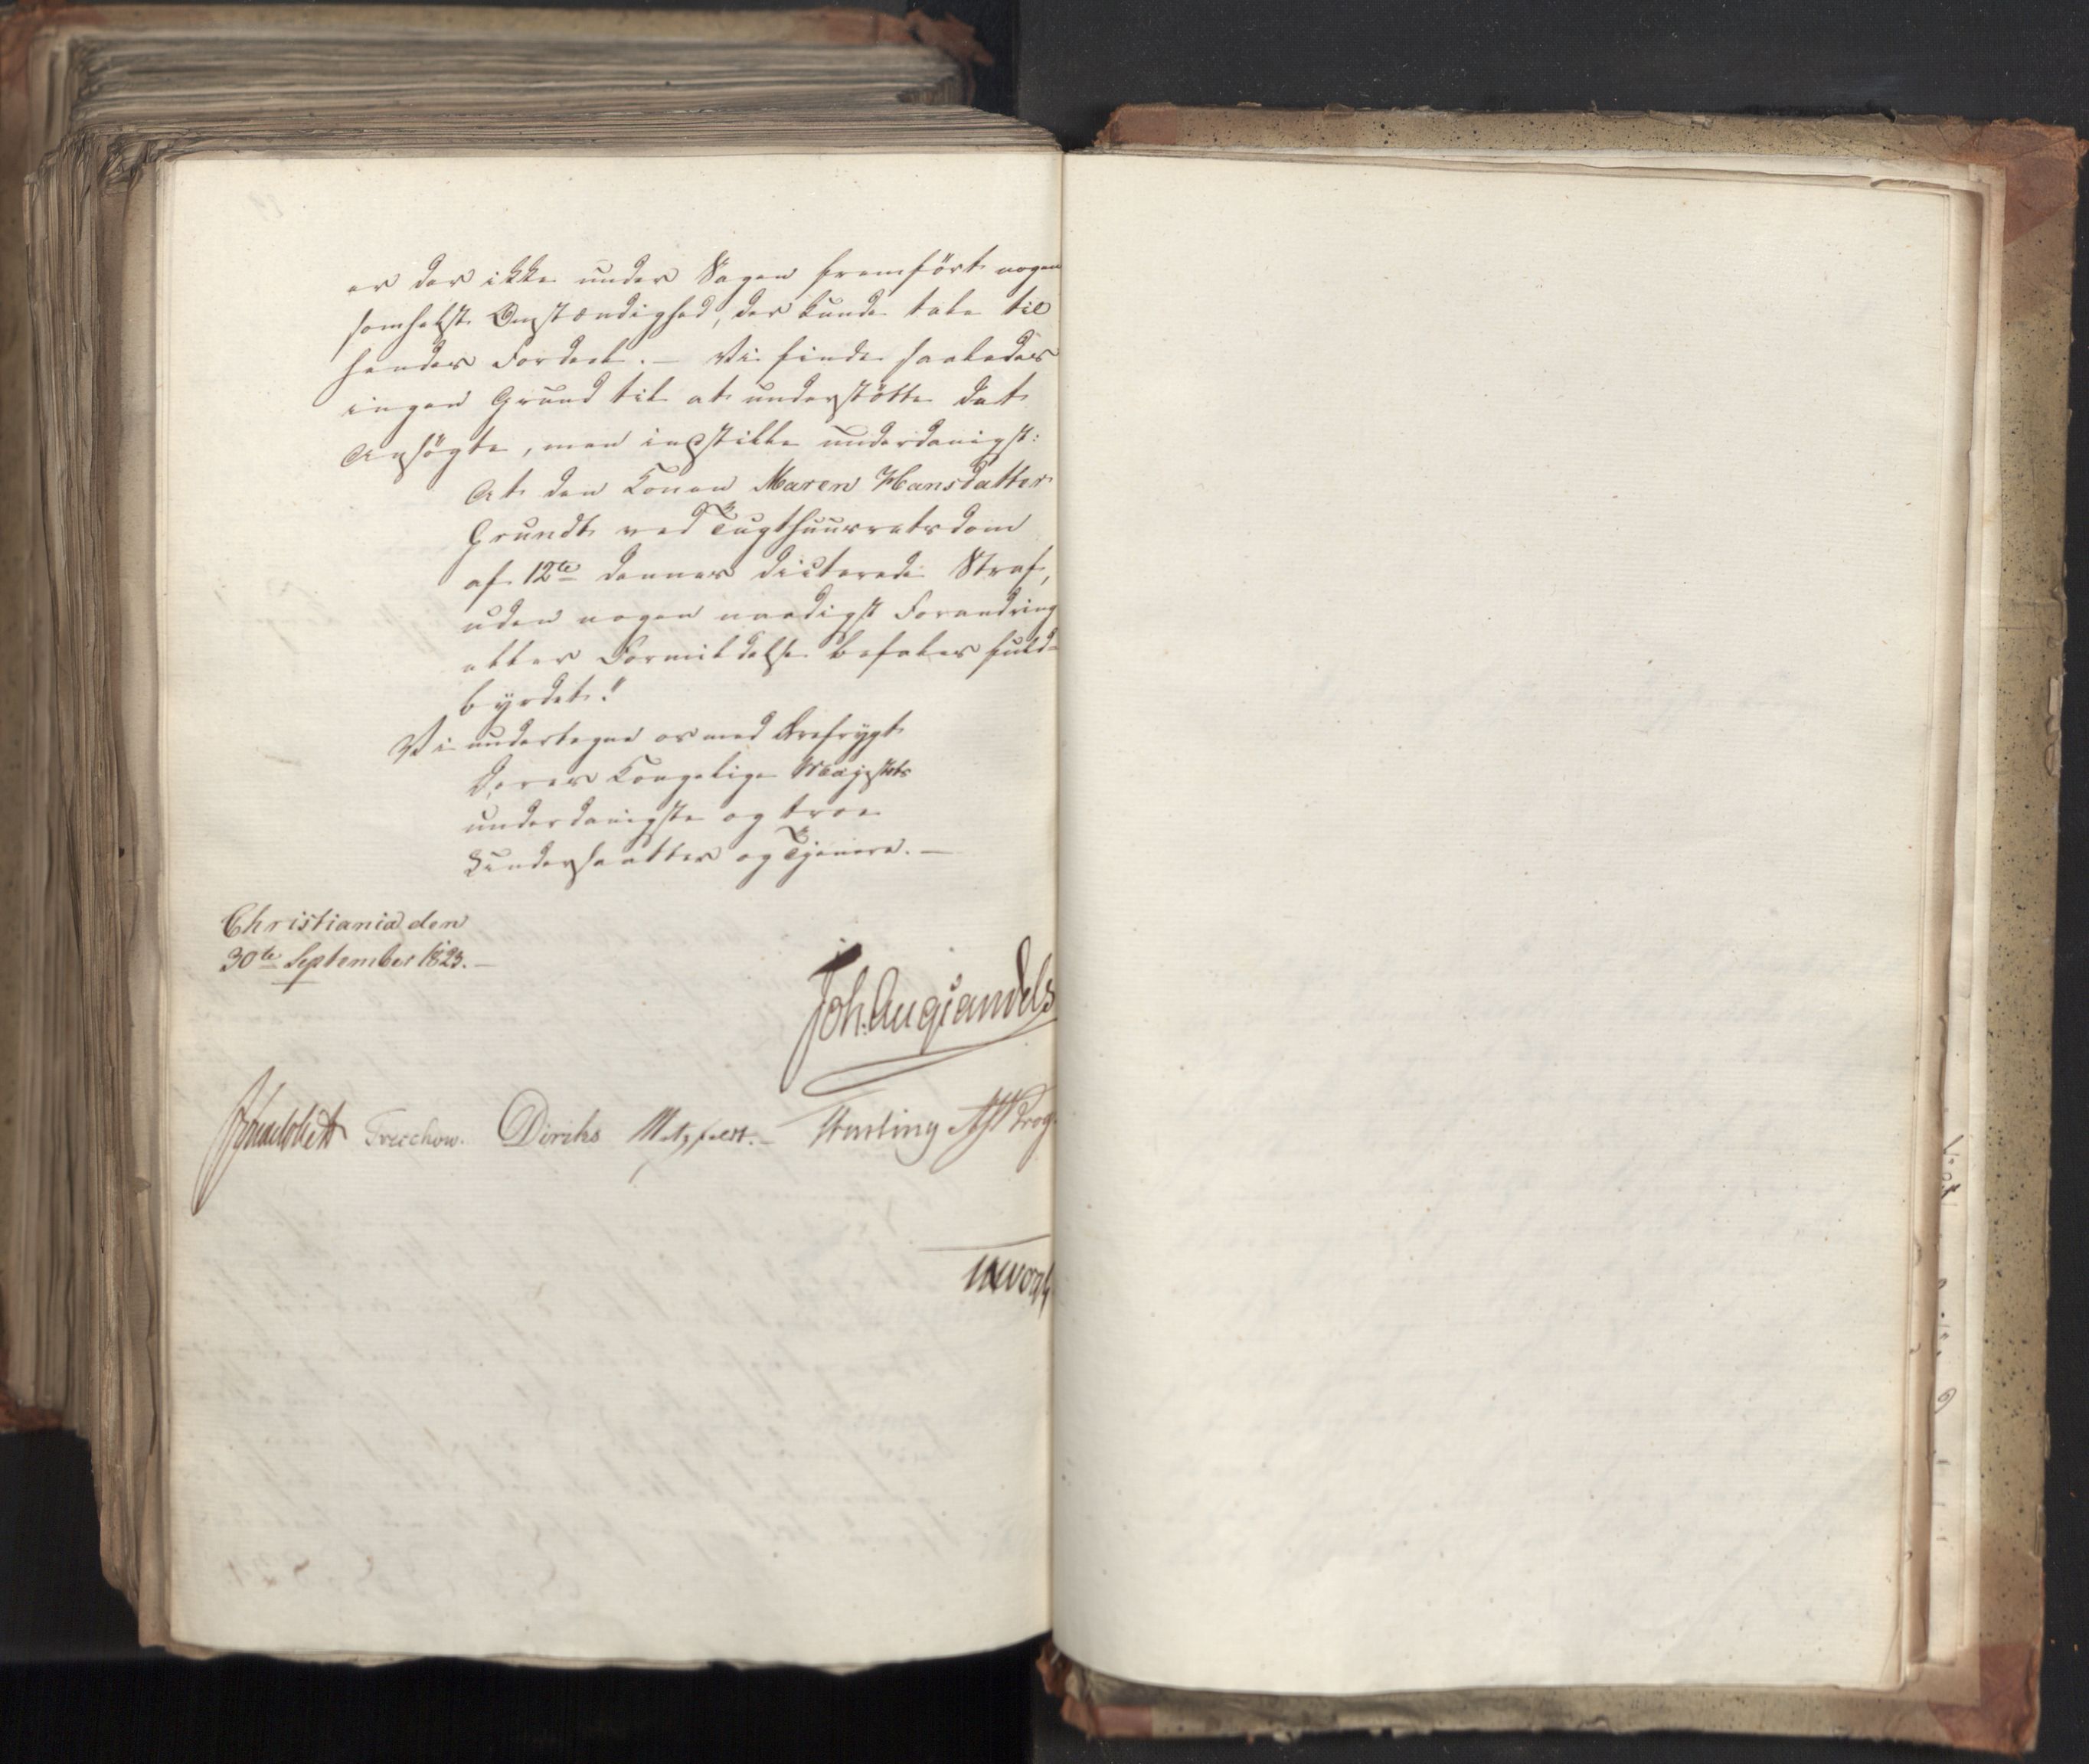 er der ikke under Sagen fremført nogen
somhelst Omstændighed, der kunde tale til
hendes Fordeel. – Vi finde saaledes
ingen Grund til at understøtte det
Ansøgte, men indstille underdanigst:
At den Konen Maren Hansdatter
Grundt ved Tugthuusretsdom
af 12te dennes dicterede Straf,
uden nogen naadigst Forandring
eller Formildelse befales fuld-
byrdet!
Vi undertegne os med Ærefrygt
Deres Kongelige Majestets
underdanigste og troe
Undersaatter og Tjenere. –
Christiania den
30te September 1823. –
Joh. Aug Sandels
Treschow. Diriks Motzfeldt. – Krog